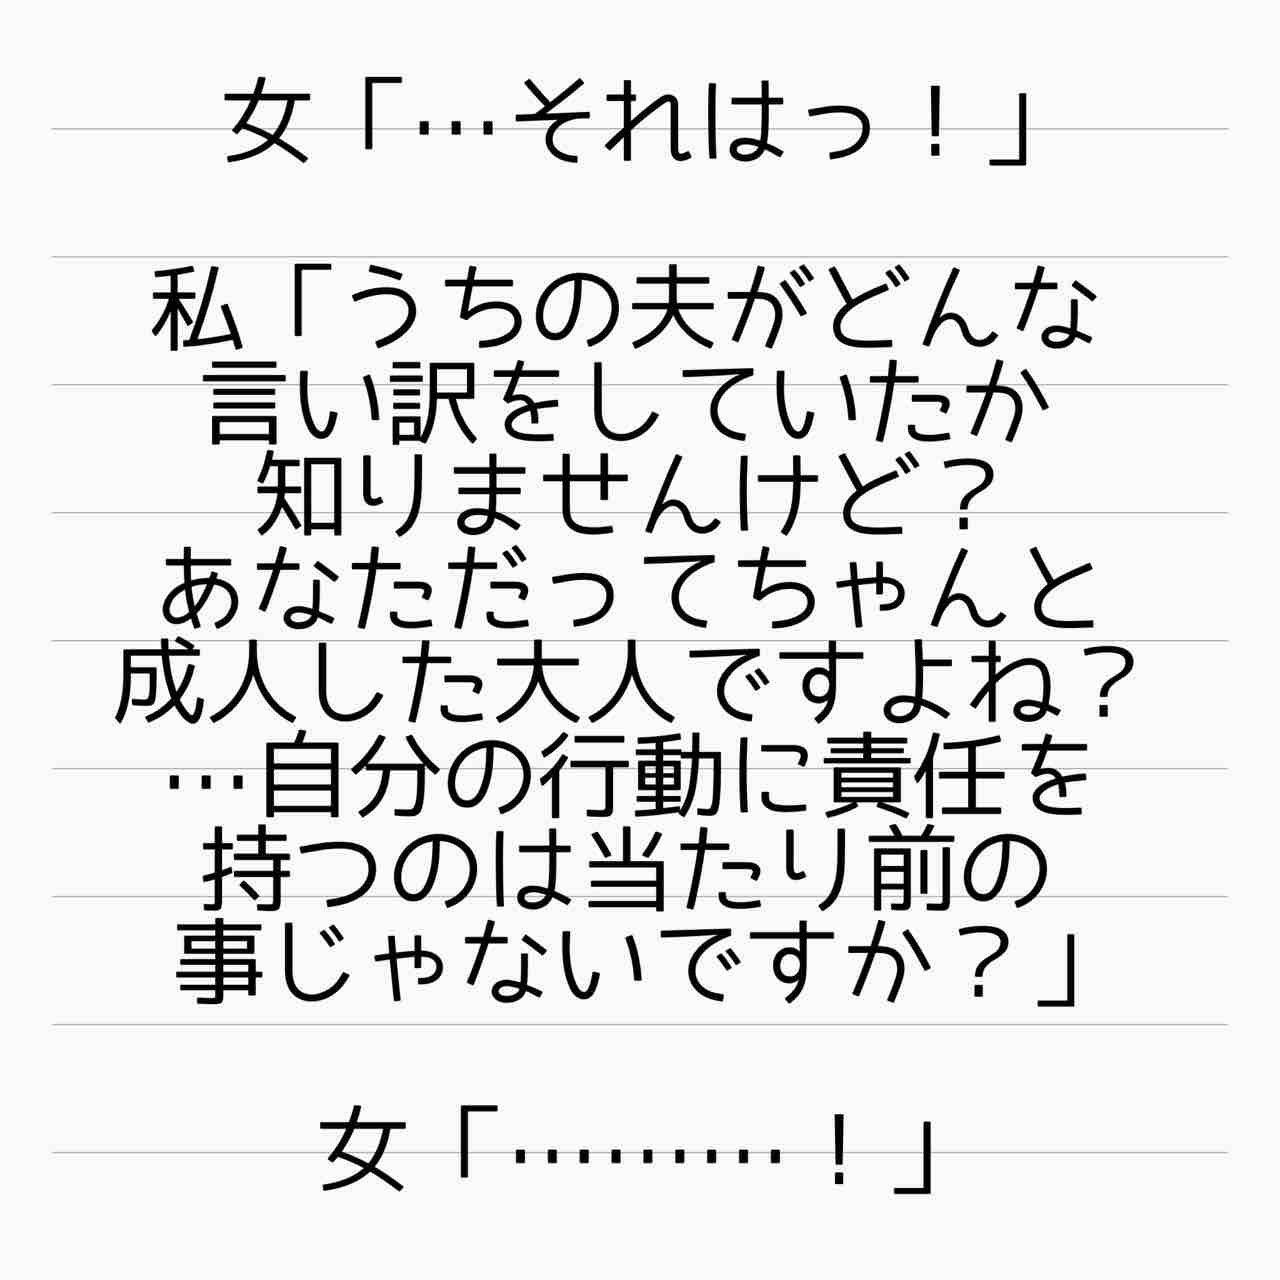 女「…それはっ！」
私「うちの夫がどんな
言い訳をしていたか
知りませんけど？
あなただってちゃんと
成人した大人ですよね？
…自分の行動に責任を
持つのは当たり前の
事じゃないですか？」
女「………！」